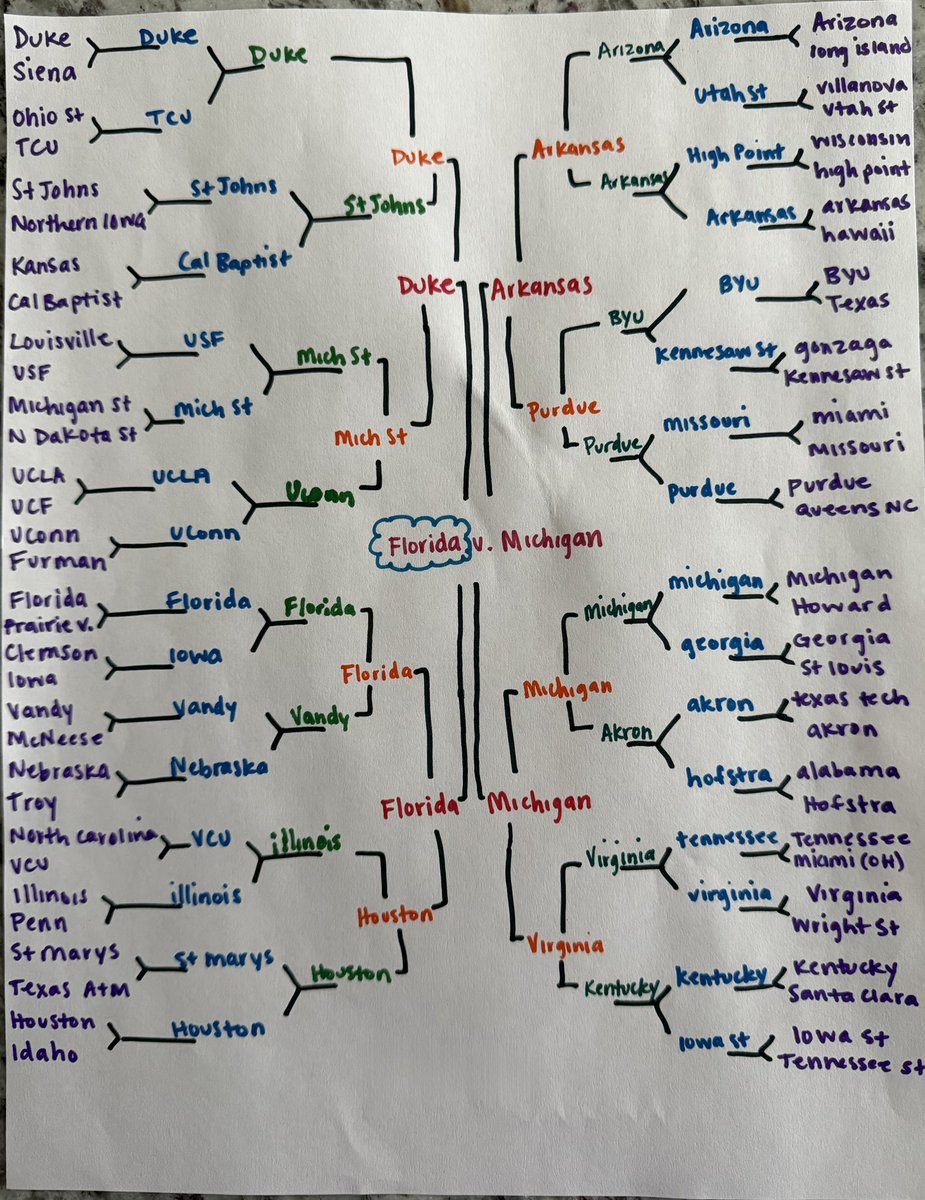 Duke
Siena
Ohio St
TCU
St Johns
Northern Iowa
Kansas
Cal Baptist
Louisville
USF
Michigan St
N Dakota St
UCLA
UCF
UConn
Furman
Florida
Prairie V.
Clemson
Iowa
Vandy
McNeese
Nebraska
Troy
North Carolina
VCU
Illinois
Penn
St Marys
Texas A+M
Houston
Idaho
Duke
TCU
St Johns
Cal Baptist
USF
Mich St
UCLA
UConn
Florida
Iowa
Vandy
Nebraska
VCU
illinois
St Marys
Houston
Duke
St Johns
Mich St
Uconn
Florida
Vandy
illinois
Houston
Duke
Mich St
Florida
Houston
Duke
Florida
Florida v. Michigan
Arkansas
Michigan
Arkansas
Purdue
Michigan
Virginia
Arizona
Arkansas
BYU
Purdue
Michigan
Akron
Virginia
Kentucky
Arizona
Utah St
High Point
Arkansas
BYU
Kennesaw St
missouri
purdue
michigan
georgia
akron
hofstra
tennessee
virginia
Kentucky
Iowa St
Arizona
long island
villanova
Utah St
wisconsin
high point
arkansas
hawaii
BYU
Texas
gonzaga
Kennesaw St
miami
Missouri
Purdue
Queens NC
Michigan
Howard
Georgia
St louis
texas tech
akron
alabama
Hofstra
Tennessee
miami (OH)
Virginia
Wright St
Kentucky
Santa Clara
Iowa St
Tennessee St